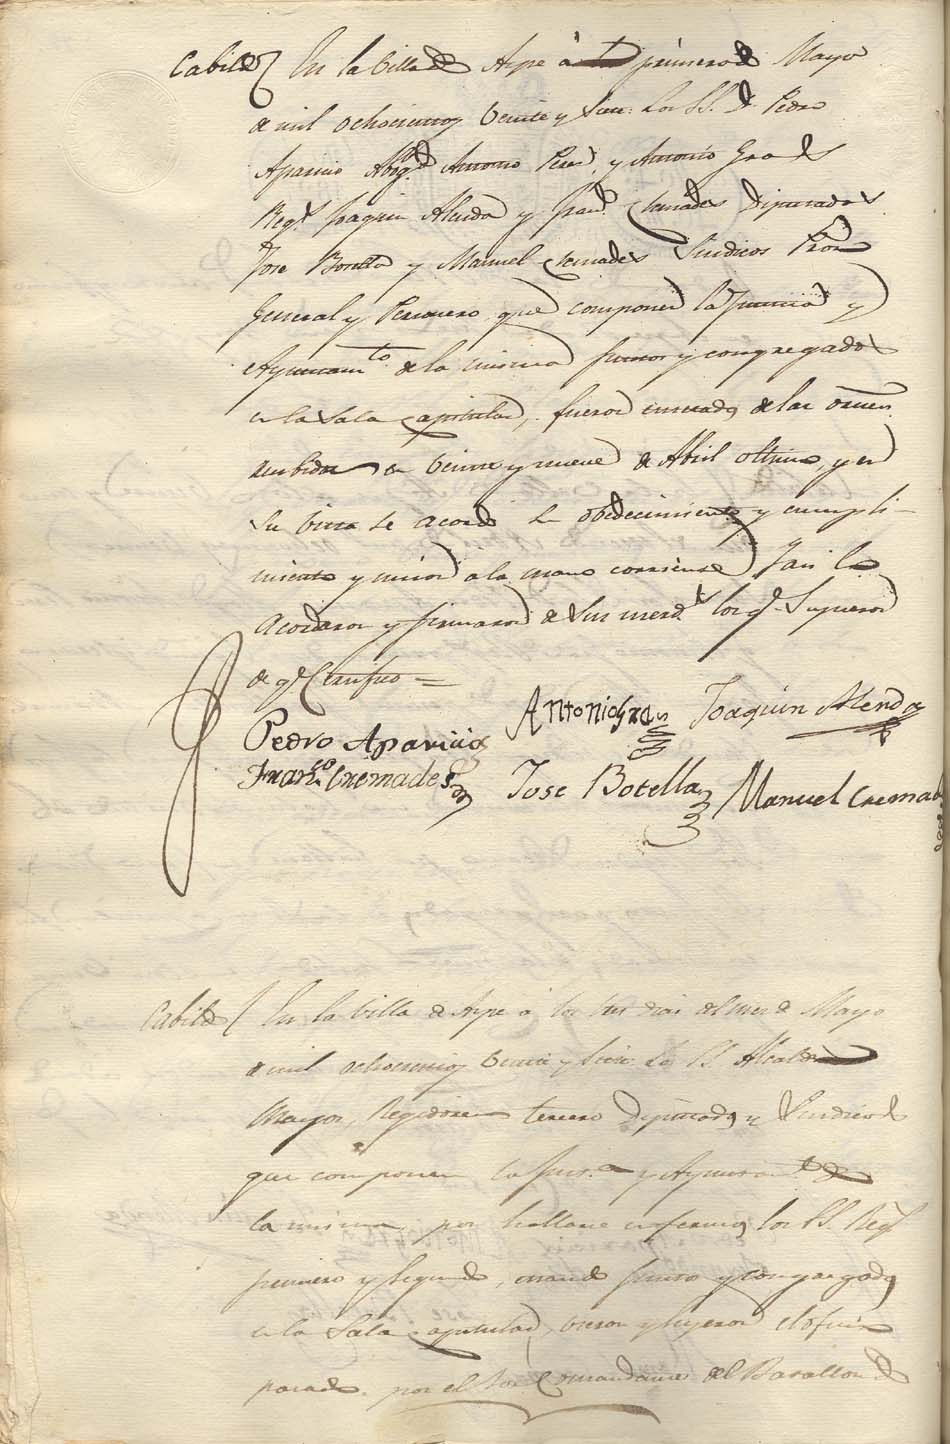 Cabildo En la Villa de Aspe à primero de Mayo
de mil ochocientos veinte y siete: Los SS. Dn. Pedro
Aparicio Abogdo. Antonio Perez, y Antonio Gras
Regs. Joaquin Alenda y Franco. Cremades Diputados
Jose Botella y Manuel Cremades Sindicos Pror.
General y Personero que componen la Justicia y
Ayuntamto. de la misma juntos y congregados
en la Sala Capitular, fueron enterados de las ordenes
recibidas en veinte y nueve de Abril ultimo, y en
su vista se acordó su obedecimiento y cumpli-
miento y unir á la mano corriente Y asi lo
acordaron y firmaron de sus merds. los qe. supieron
de qe. Certifico =
Pedro Aparicio Antonio Gras Joaquin Alenda
Franco. Cremades Jose Botella Manuel Cremades
Cabildo En la Villa de Aspe á los tres dias del mes de Mayo
de mil ochocientos veinte y siete: Los SS. Alcalde
Mayor, Regidores tercero Diputados y Sindicos
que componen la Justa. y Ayuntamto. de
la misma, por hallarse enfermos los SS. Regs.
primero y segundo, estando juntos y congregados
en la Sala Capitular, vieron y leyeron el oficio
pasado por el Sor. Comandante del Batallon de